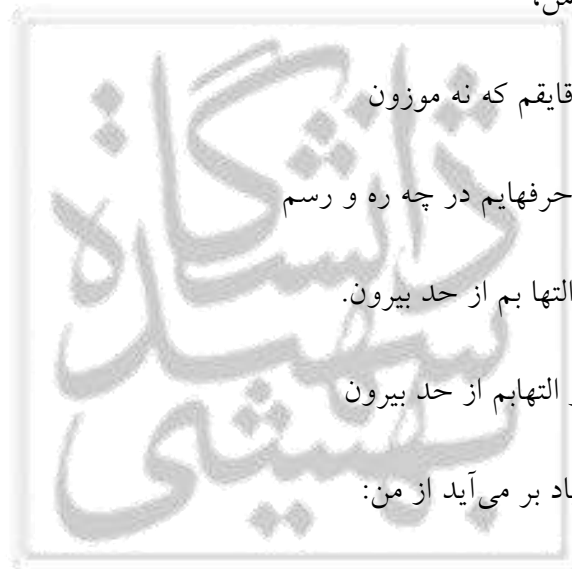 من،
قایقم که نه موزون
حرفهایم در چه ره و رسم
التها بم از حد بیرون.
التهابم از حد بیرون
بر می‌آید از من:
دانشگاه
شهید
بهشتی